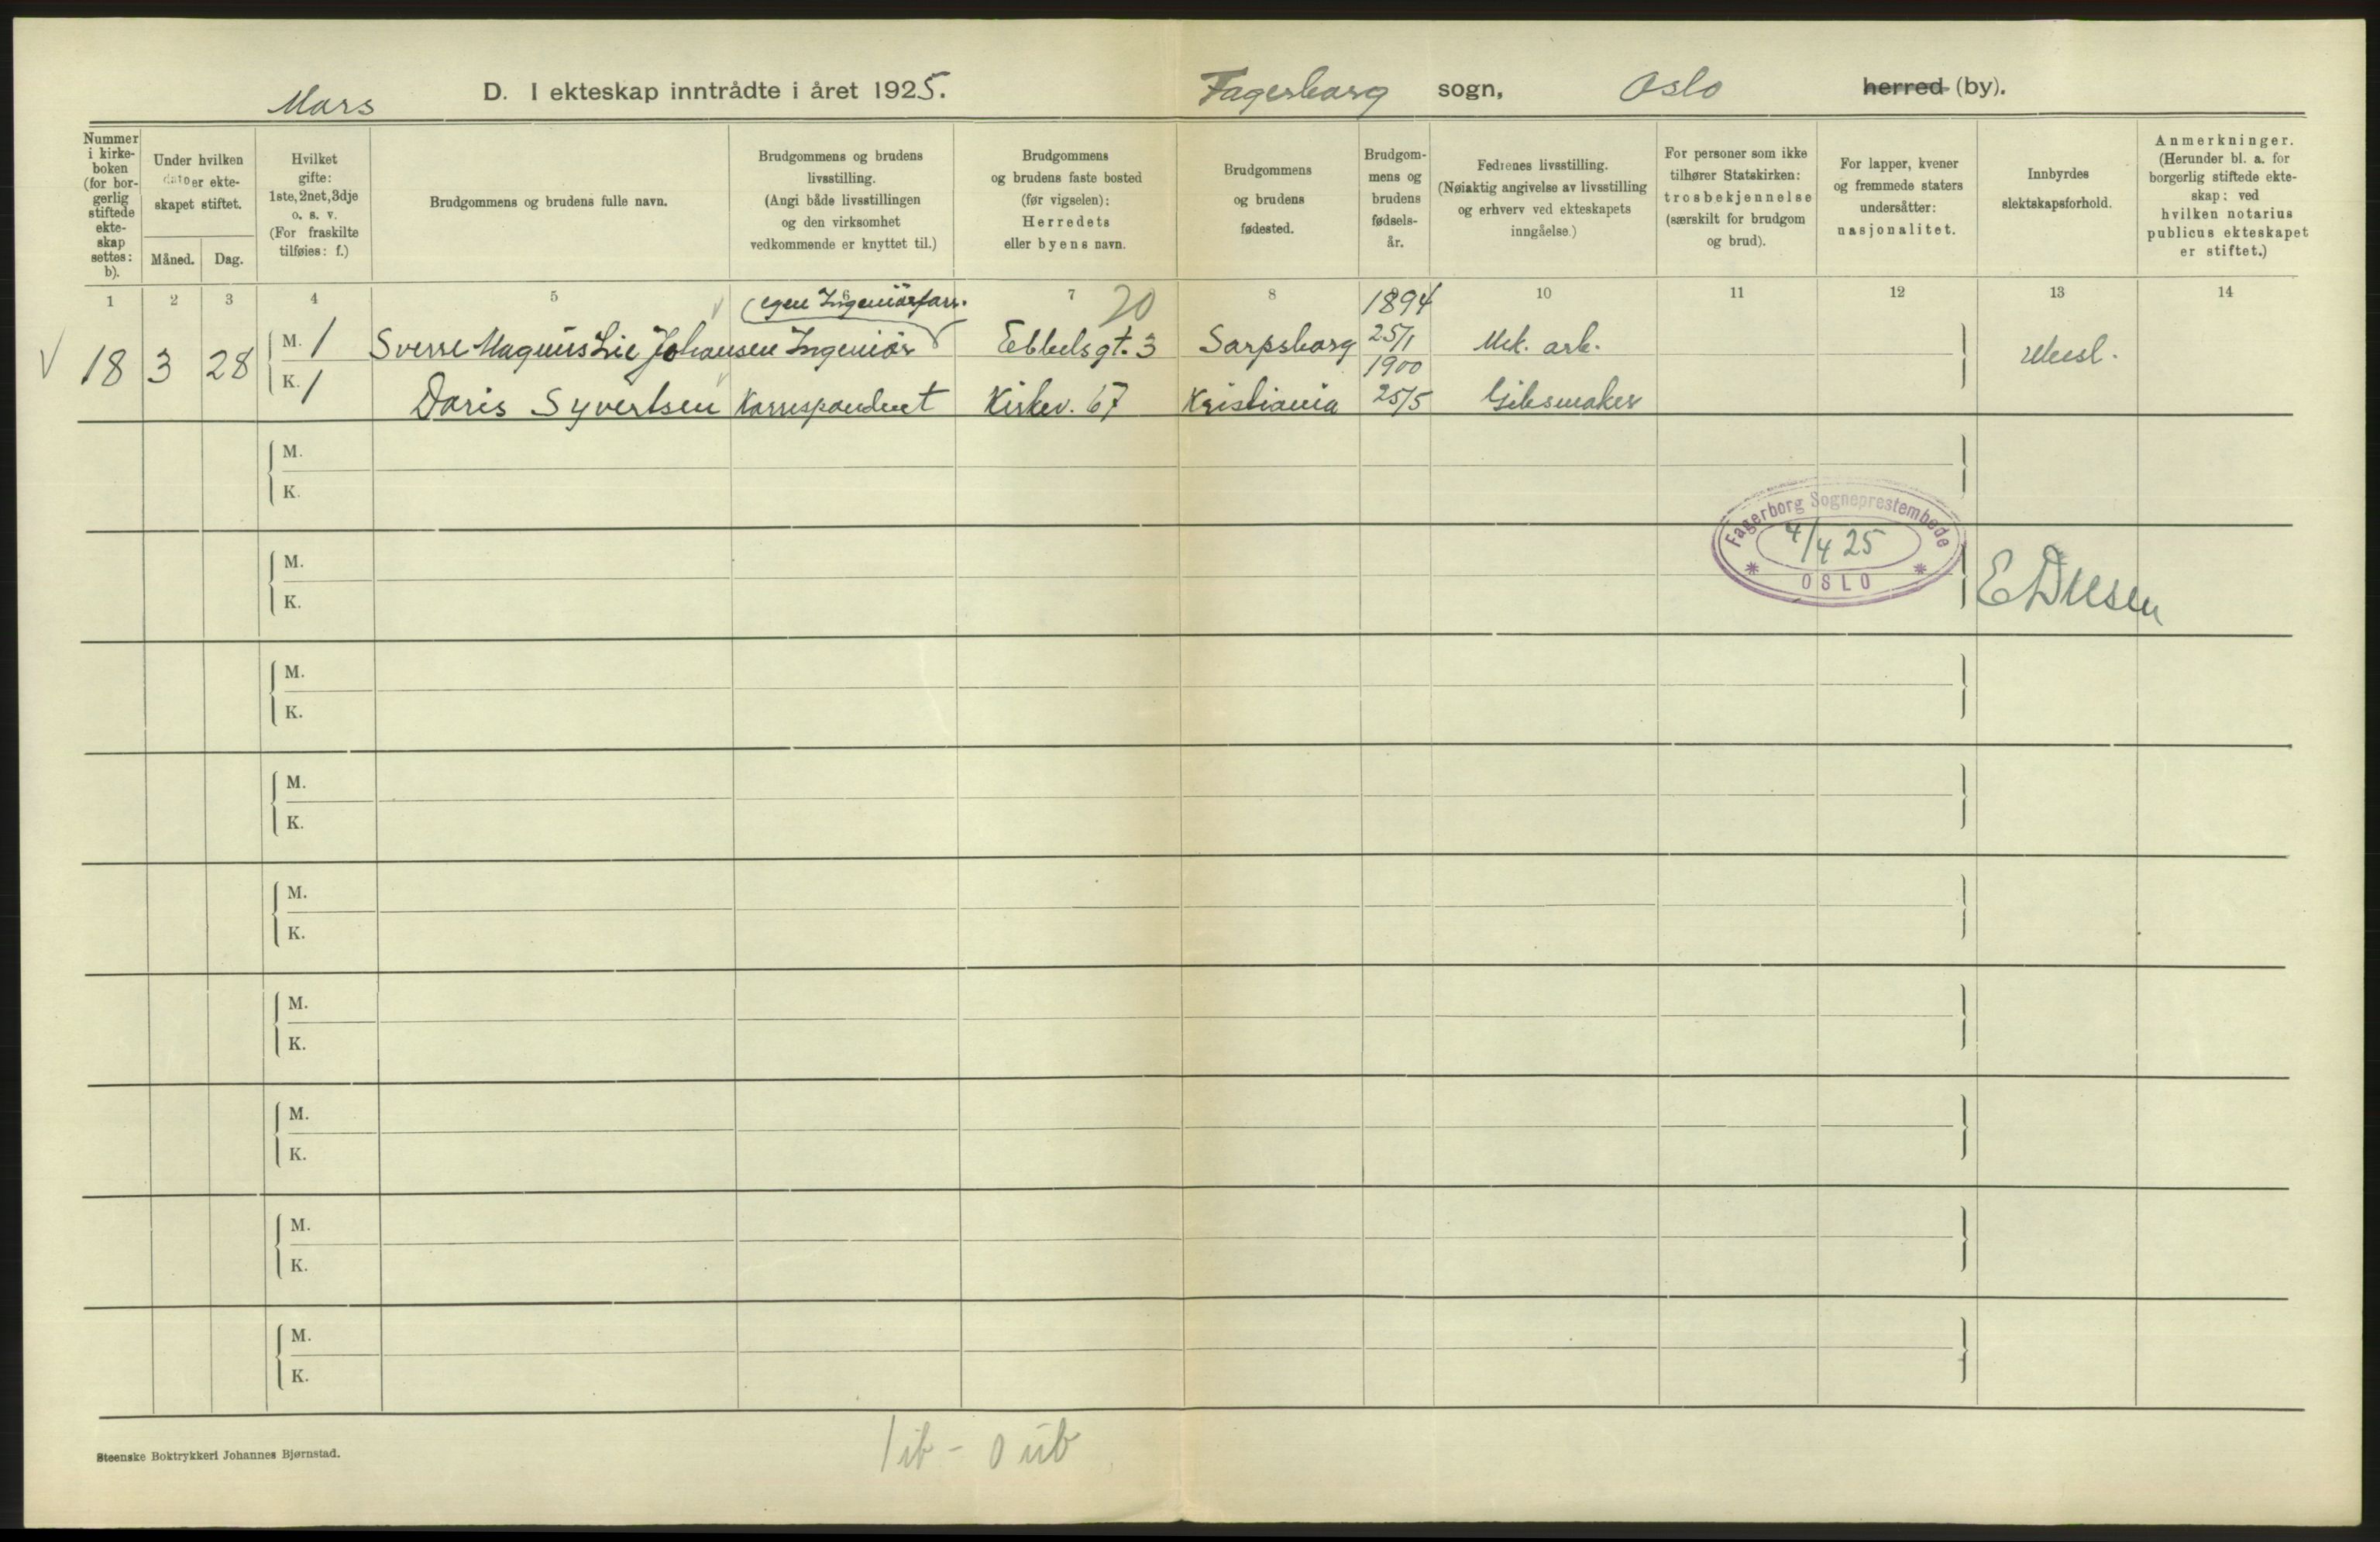 Mars
D. I ekteskap inntrådte i året 1925.
Fagerborg sogn, Oslo herred (by).
Nummer
i kirke-
boken
(for bor-
gerlig
stiftede
ekte-
skap
settes:
b).
Under hvilken
dato er ekte-
skapet stiftet.
Måned.
Dag.
Hvilket
gifte:
1ste, 2net, 3dje
o. s. v.
(For fraskilte
tilføies: f.)
Brudgommens og brudens fulle navn.
Brudgommens og brudens
livsstilling.
(Angi både livsstillingen
og den virksomhet
vedkommende er knyttet til.)
Brudgommens
og brudens faste bosted
(før vigselen):
Herredets
eller byens navn.
Brudgommens
og brudens
fødested.
Brudgom-
mens og
brudens
fødsels-
år.
Fedrenes livsstilling.
(Nøiaktig angivelse av livsstilling
og erhverv ved ekteskapets
inngåelse.)
For personer som ikke
tilhører Statskirken:
trosbekjennelse
(særskilt for brudgom
og brud).
For lapper, kvener
og fremmede staters
undersåtter:
nasjonalitet.
Innbyrdes
slektskapsforhold.
Anmerkninger.
(Herunder bl. a. for
borgerlig stiftede ekte-
skap: ved
hvilken notarius
publicus ekteskapet
er stiftet.)
1 2 3 4 5 6 7 8 10 11 12 13 14
(egen Ingeniørforr. 20 1894
18 3 28 M. 1 Sverre Magnus Lie Johansen Ingeniør Ebbelsgt. 3 Sarpsborg 25/1 Mek. arb. Ubesl.
1900
K. 1 Doris Syvertsen Korrespondent Kirkev. 67 Kristiania 25/5 Gibsmaker
M.
K.
Fagerborg Sogneprestembede
4/4 25
* OSLO *
M.
K.
M.
K.
M.
K.
M.
K.
M.
K.
M.
K.
M.
K.
M.
K.
1 ib - 0 ub
Steenske Boktrykkeri Johannes Bjørnstad.